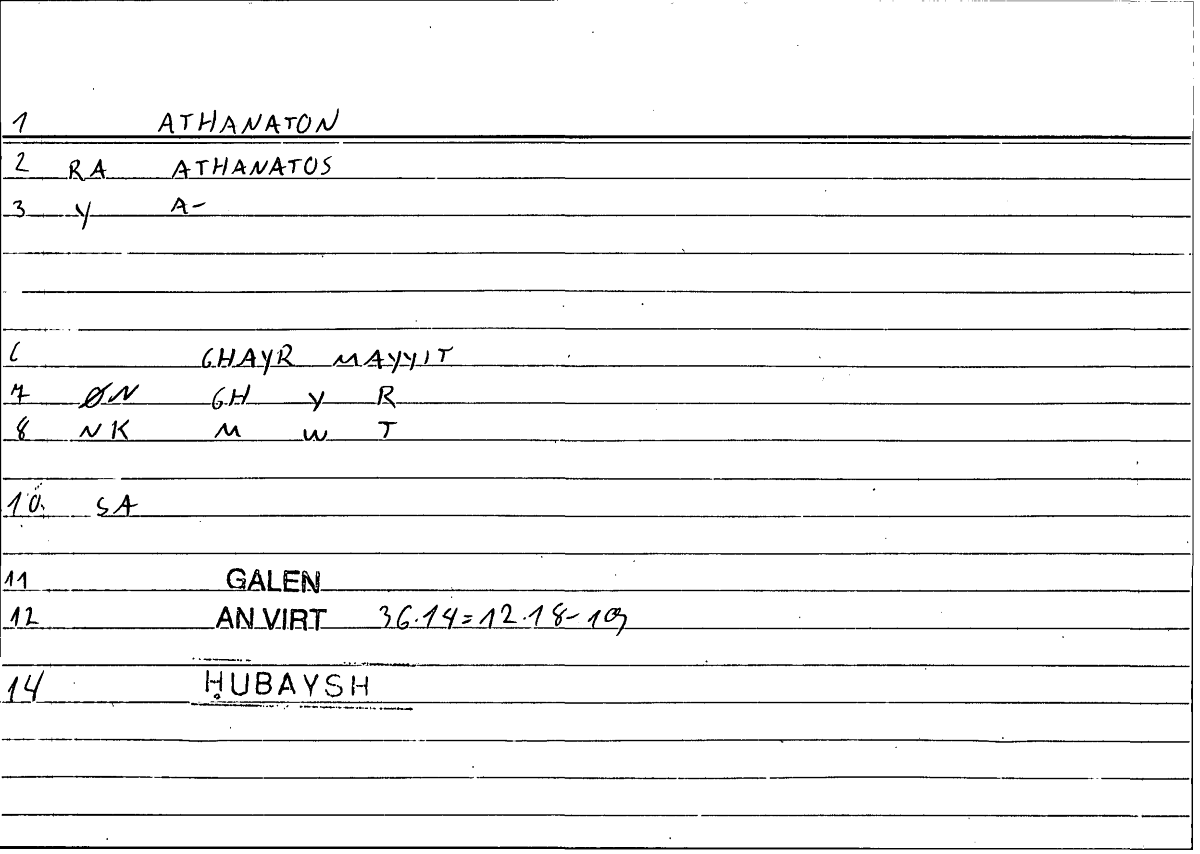 1 ATHANATON
2 RA ATHANATOS
3 Y A-
6 GHAYR MAYYIT
7 ØN GH Y R
8 NK M W T
10. SA
11 GALEN
12 AN VIRT 36.14=12.18-19
14 ḤUBAYSH